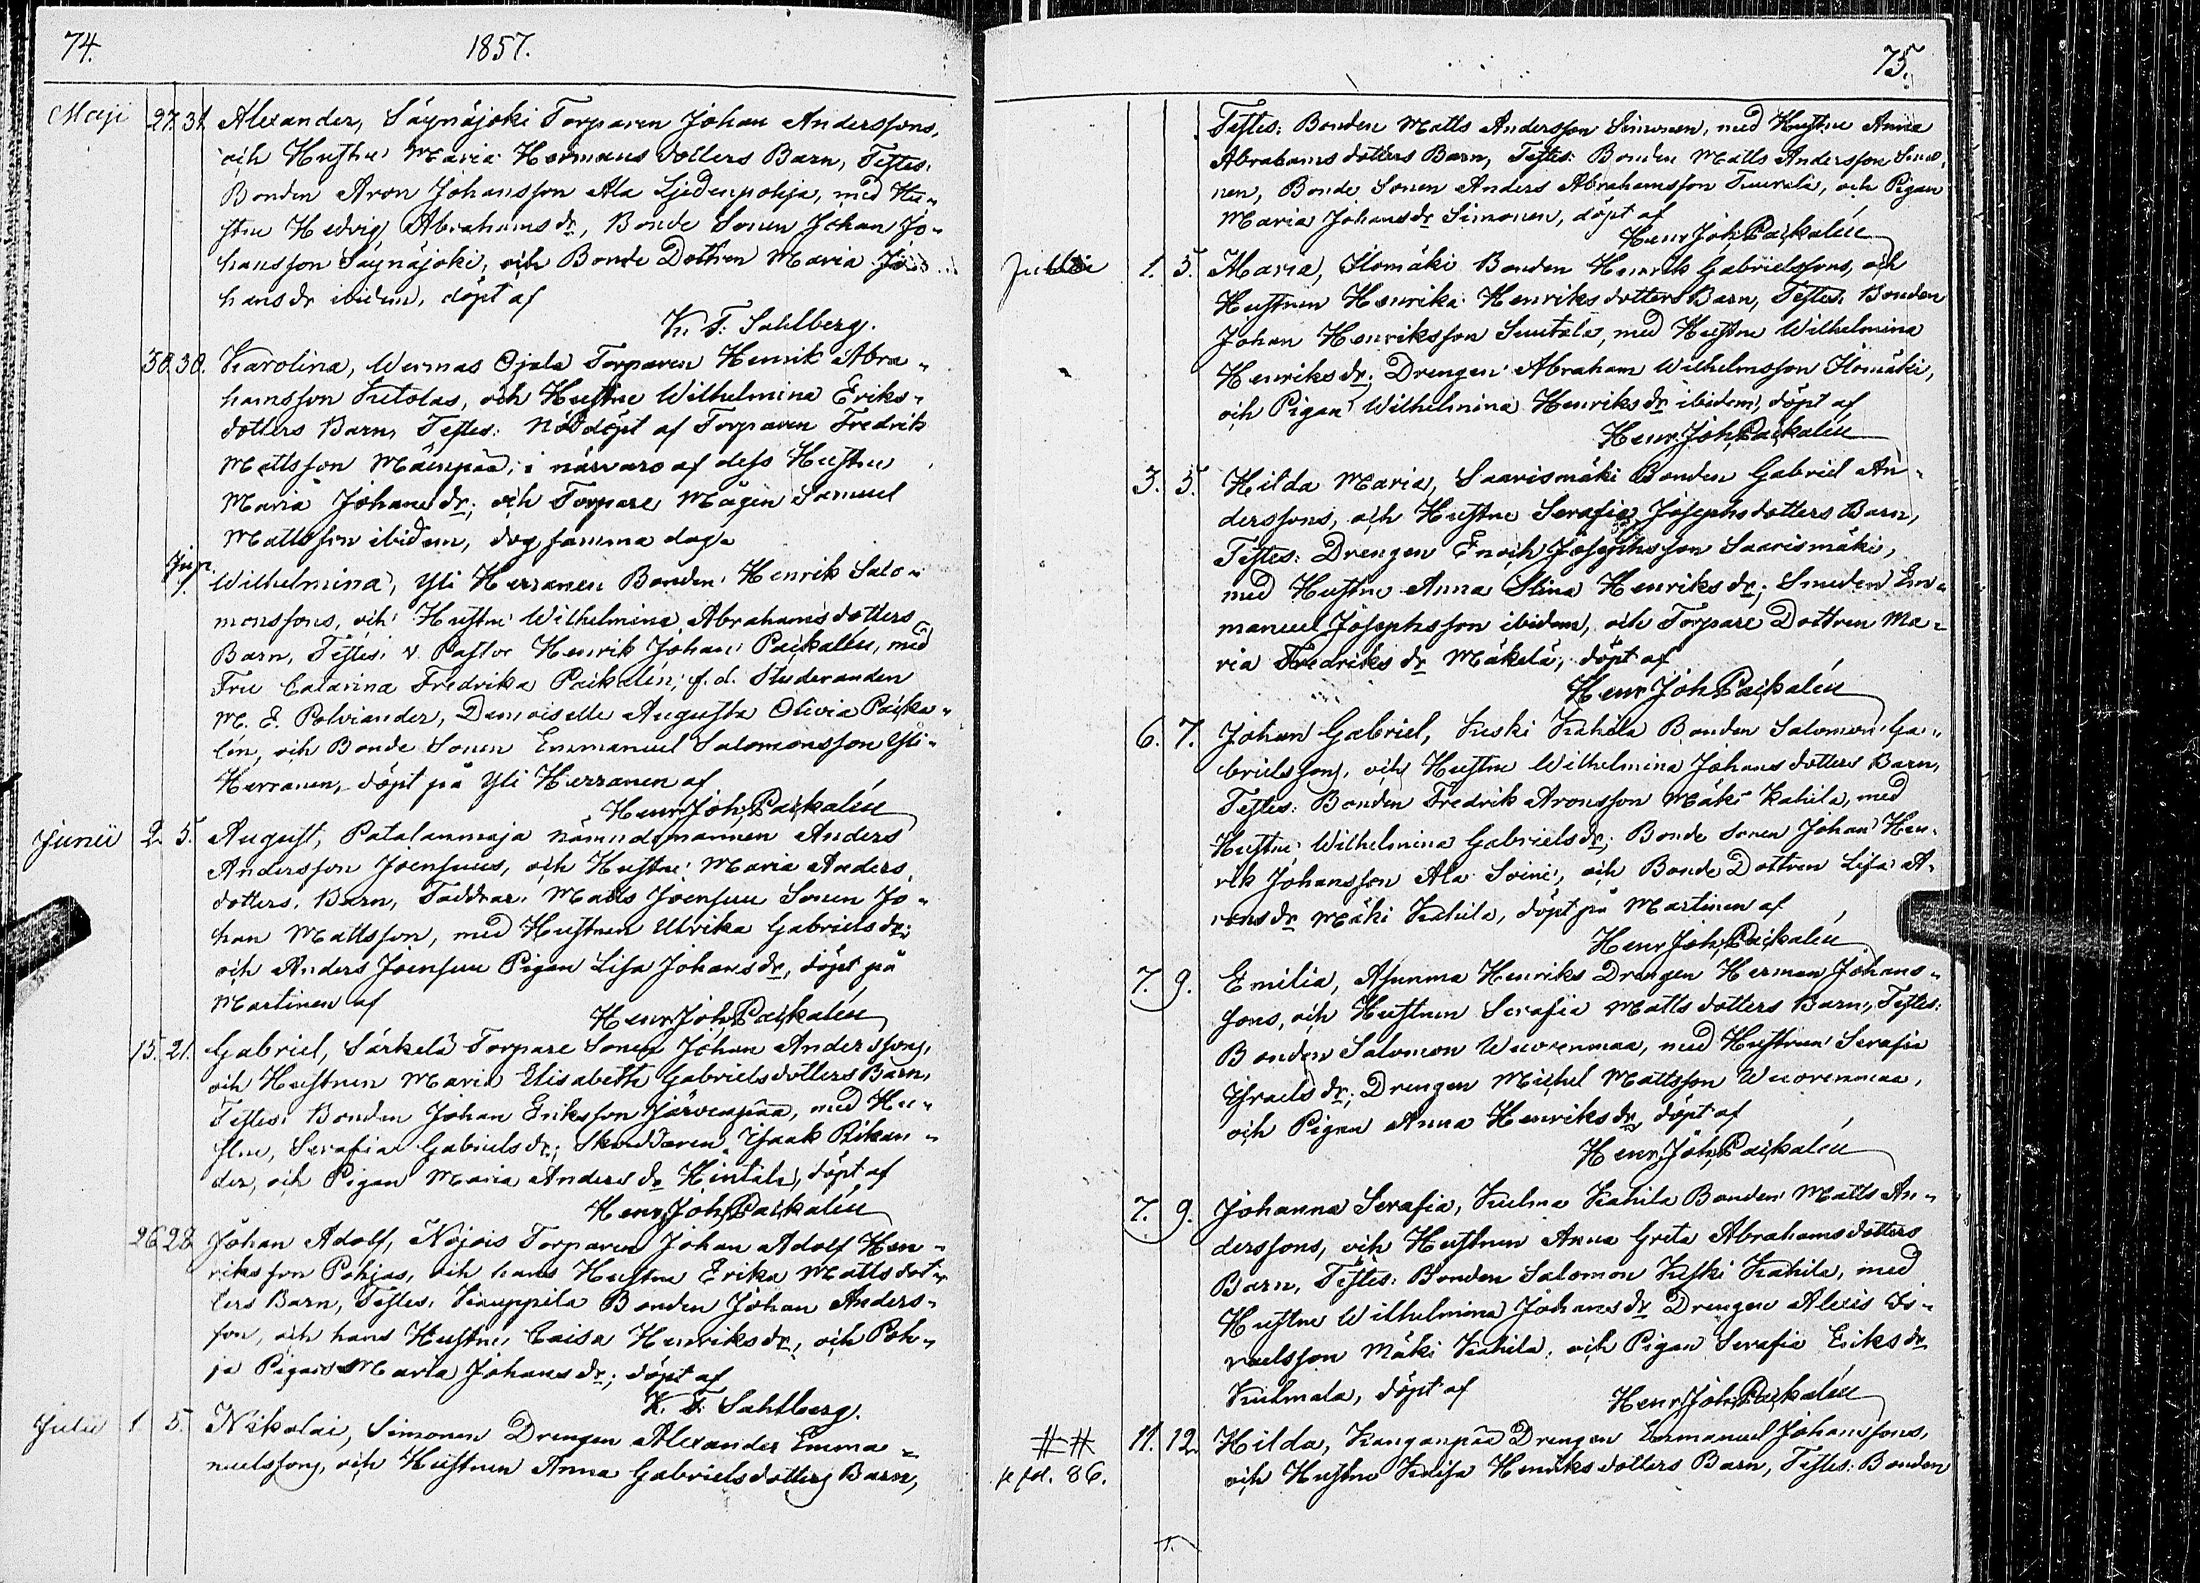 74.
1857.
Maji 27. 31. Alexander, Säynäjoki Torparen Johan Anderssons,
och Hustru Maria Hermans dotters Barn, Testes:
Bonden Aron Johansson Ala Ljedenpohja, med Hu-
stru Hedvig Abrahams dr, Bonde Sonen Johan Jo-
hansson Säynäjoki, och Bonde Dottren Maria Jo-
hans dr ibidem, döpt af
K. F. Sahlberg.
30. 30. Karolina, Wermas Ojala Torparen Henrik Abra-
hamsson Ketolas, och Hustru Wilhelmina Eriks-
dotters Barn, Testes: Nöddöpt af Torparen Fredrik
Mattsson Mäenpää, i närvaro af dess Hustru
Maria Johans dr, och Torpare Mågen Samuel
Mattsson ibidem, dog samma dag.
Jun. 1. Wilhelmina, Yli Herranen Bonden Henrik Salo-
monssons, och Hustru Wilhelmina Abrahams dotters
Barn, Testes: v. Pastor Henrik Johan Paikalén, med
Fru Catarina Fredrika Paikalén; f. d. Studeranden
M. E. Polviander, Demoiselle Augusta Olivia Paika-
lén, och Bonde Sonen Emmanuel Salomonsson Yli-
Herranen, döpt på Yli Herranen af
Henr. Joh. Paikalén
Junii 2. 5. August, Patalanmaja Nämndemannen Anders
Andersson Joensuus, och Hustru Maria Anders
dotters Barn, Faddrar: Matts Joensuu Sonen Jo-
han Mattsson, med Hustrun Ulrika Gabriels dr;
och Anders Joensuu Pigan Lisa Johans dr, döpt på
Martinen af
Henr. Joh. Paikalén
15. 21. Gabriel, Särkelä Torpare Sonen Johan Anderssons,
och Hustrun Maria Elisabeth Gabriels dotters Barn,
Testes: Bonden Johan Eriksson Järvenpää, med Hu-
stru, Serafia Gabriels dr; Skräddaren Isaak Rikan-
der, och Pigan Maria Anders dr Hintala, döpt af
Henr. Joh. Paikalén
26. 28. Johan Adolf, Nojois Torparen Johan Adolf Hen-
riksson Pohjas, och hans Hustru Erika Matts dot-
ters Barn, Testes: Kauppila Bonden Johan Anders-
son, och hans Hustru Caisa Henriks dr, och Poh-
ja Pigan Maria Johans dr; döpt af
K. F. Sahlberg.
Julii 1 5. Nikolai, Simonen Drengen Alexander Emma-
nuelssons, och Hustrun Anna Gabriels dotters Barn,
75.
Testes: Bonden Matts Andersson Simonen, med Hustru Anna
Abrahams dotters Barn, Testes: Bonden Matts Andersson Simo-
nen, Bonde Sonen Anders Abrahamsson Tuurela, och Pigan
Maria Johans dr Simonen, döpt af
Henr. Joh. Paikalén
Julii 1. 5. Maria, Ilomäki Bonden Henrik Gabrielssons, och
Hustrun Henrika Henriks dotters Barn, Testes: Bonden
Johan Henriksson Suutala, med Hustru Wilhelmina
Henriks dr; Drengen Abraham Wilhelmsson Ilomäki,
och Pigan Wilhelmina Henriks dr ibidem, döpt af
Henr. Joh. Paikalén
3. 5. Hilda Maria, Saarismäki Bonden Gabriel An-
derssons, och Hustru Serafia Josephs dotters Barn,
Testes: Drengen Enoch Josephsson Saarismäki,
med Hustru Anna Stina Henriks dr; Smeden Em-
manuel Josephsson ibidem, och Torpare Dottren Ma-
ria Fredriks dr Mäkelä, döpt af
Henr. Joh. Paikalén
6. 7. Johan Gabriel, Keski Kahila Bonden Salomon Ga-
brielssons, och Hustru Wilhelmina Johans dotters Barn,
Testes: Bonden Fredrik Aronsson Mäki Kahila, med
Hustru Wilhelmina Gabriels dr; Bonde Sonen Johan Hen-
rik Johansson Ala Soini, och Bonde Dottren Lisa A-
rons dr Mäki Kahila, döpt på Martinen af
Henr. Joh. Paikalén
7. 9. Emilia, Asunmaa Henriks Drengen Herman Johans-
sons, och Hustrun Serafia Matts dotters Barn, Testes:
Bonden Salomon Wuorenmaa, med Hustrun Serafia
Israels dr; Drengen Michel Mattsson Wuorenmaa,
och Pigan Anna Henriks dr, döpt af
Henr. Joh. Paikalén
7. 9. Johanna Serafia, Kulma Kahila Bonden Matts An-
derssons, och Hustrun Anna Greta Abrahams dotters
Barn, Testes: Bonden Salomon Keski Kahila, med
Hustru Wilhelmina Johans dr Drengen Alexis Is-
raelsson Mäki Kahila, och Pigan Serafia Eriks dr
Kulmala, döpt af
Henr. Joh. Paikalén
## 11. 12. Hilda, Kanganpää Drengen Emmanuel Johanssons,
p. fol. 86. och Hustru Kaisa Henriks dotters Barn, Testes: Bonden